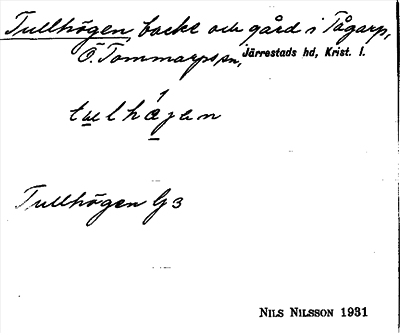 Tullhögen, backe och gård i Tågarp,
Ö. Tommarps sn, Järrestads hd, Krist. l.
Tullhögen G3
NILS NILSSON 1931